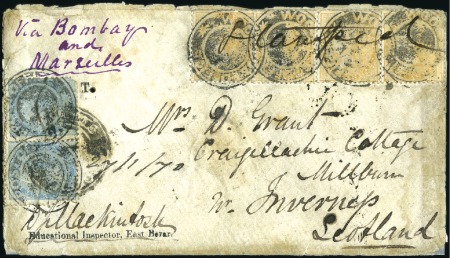 Via Bombay
and
Marseilles
Stamped
T.
Mrs D. Grant
Craigellachie Cottage
Millburn
Nr. Inverness
Scotland
27/4/70
Mackintosh
Educational Inspector, East Berar.